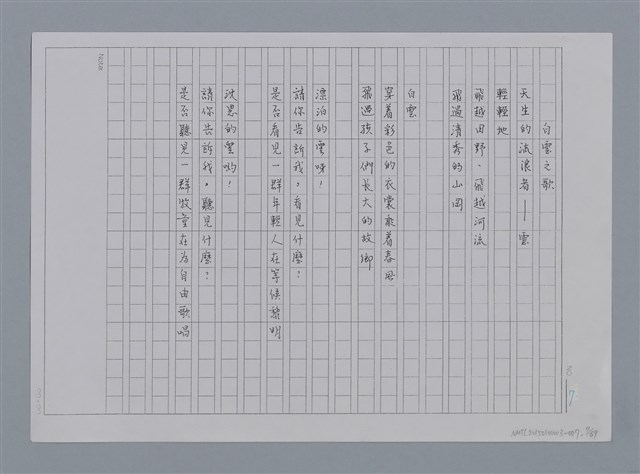 白雲之歌
天生的流浪者——雲
輕輕地
飛越田野、飛越河流
飛過清秀的山岡
白雲
穿着彩色的衣裳乘着春風
飛過孩子們長大的故鄉
漂泊的雲呀！
請你告訴我，看見什麼？
是否看見一群年輕人在等候黎明
沈思的雲喲！
請你告訴我，聽見什麼？
是否聽見一群牧童在為自由歌唱
8
7